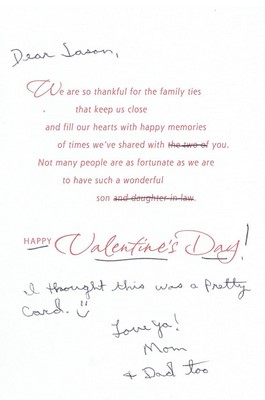 Dear Jason,
We are so thankful for the family ties
that keep us close
and fill our hearts with happy memories
of times we've shared with the two of you.
Not many people are as fortunate as we are
to have such a wonderful
son and daughter-in-law.
HAPPY Valentine's Day!
I thought this was a Pretty
Card.
Love ya!
Mom
+ Dad too